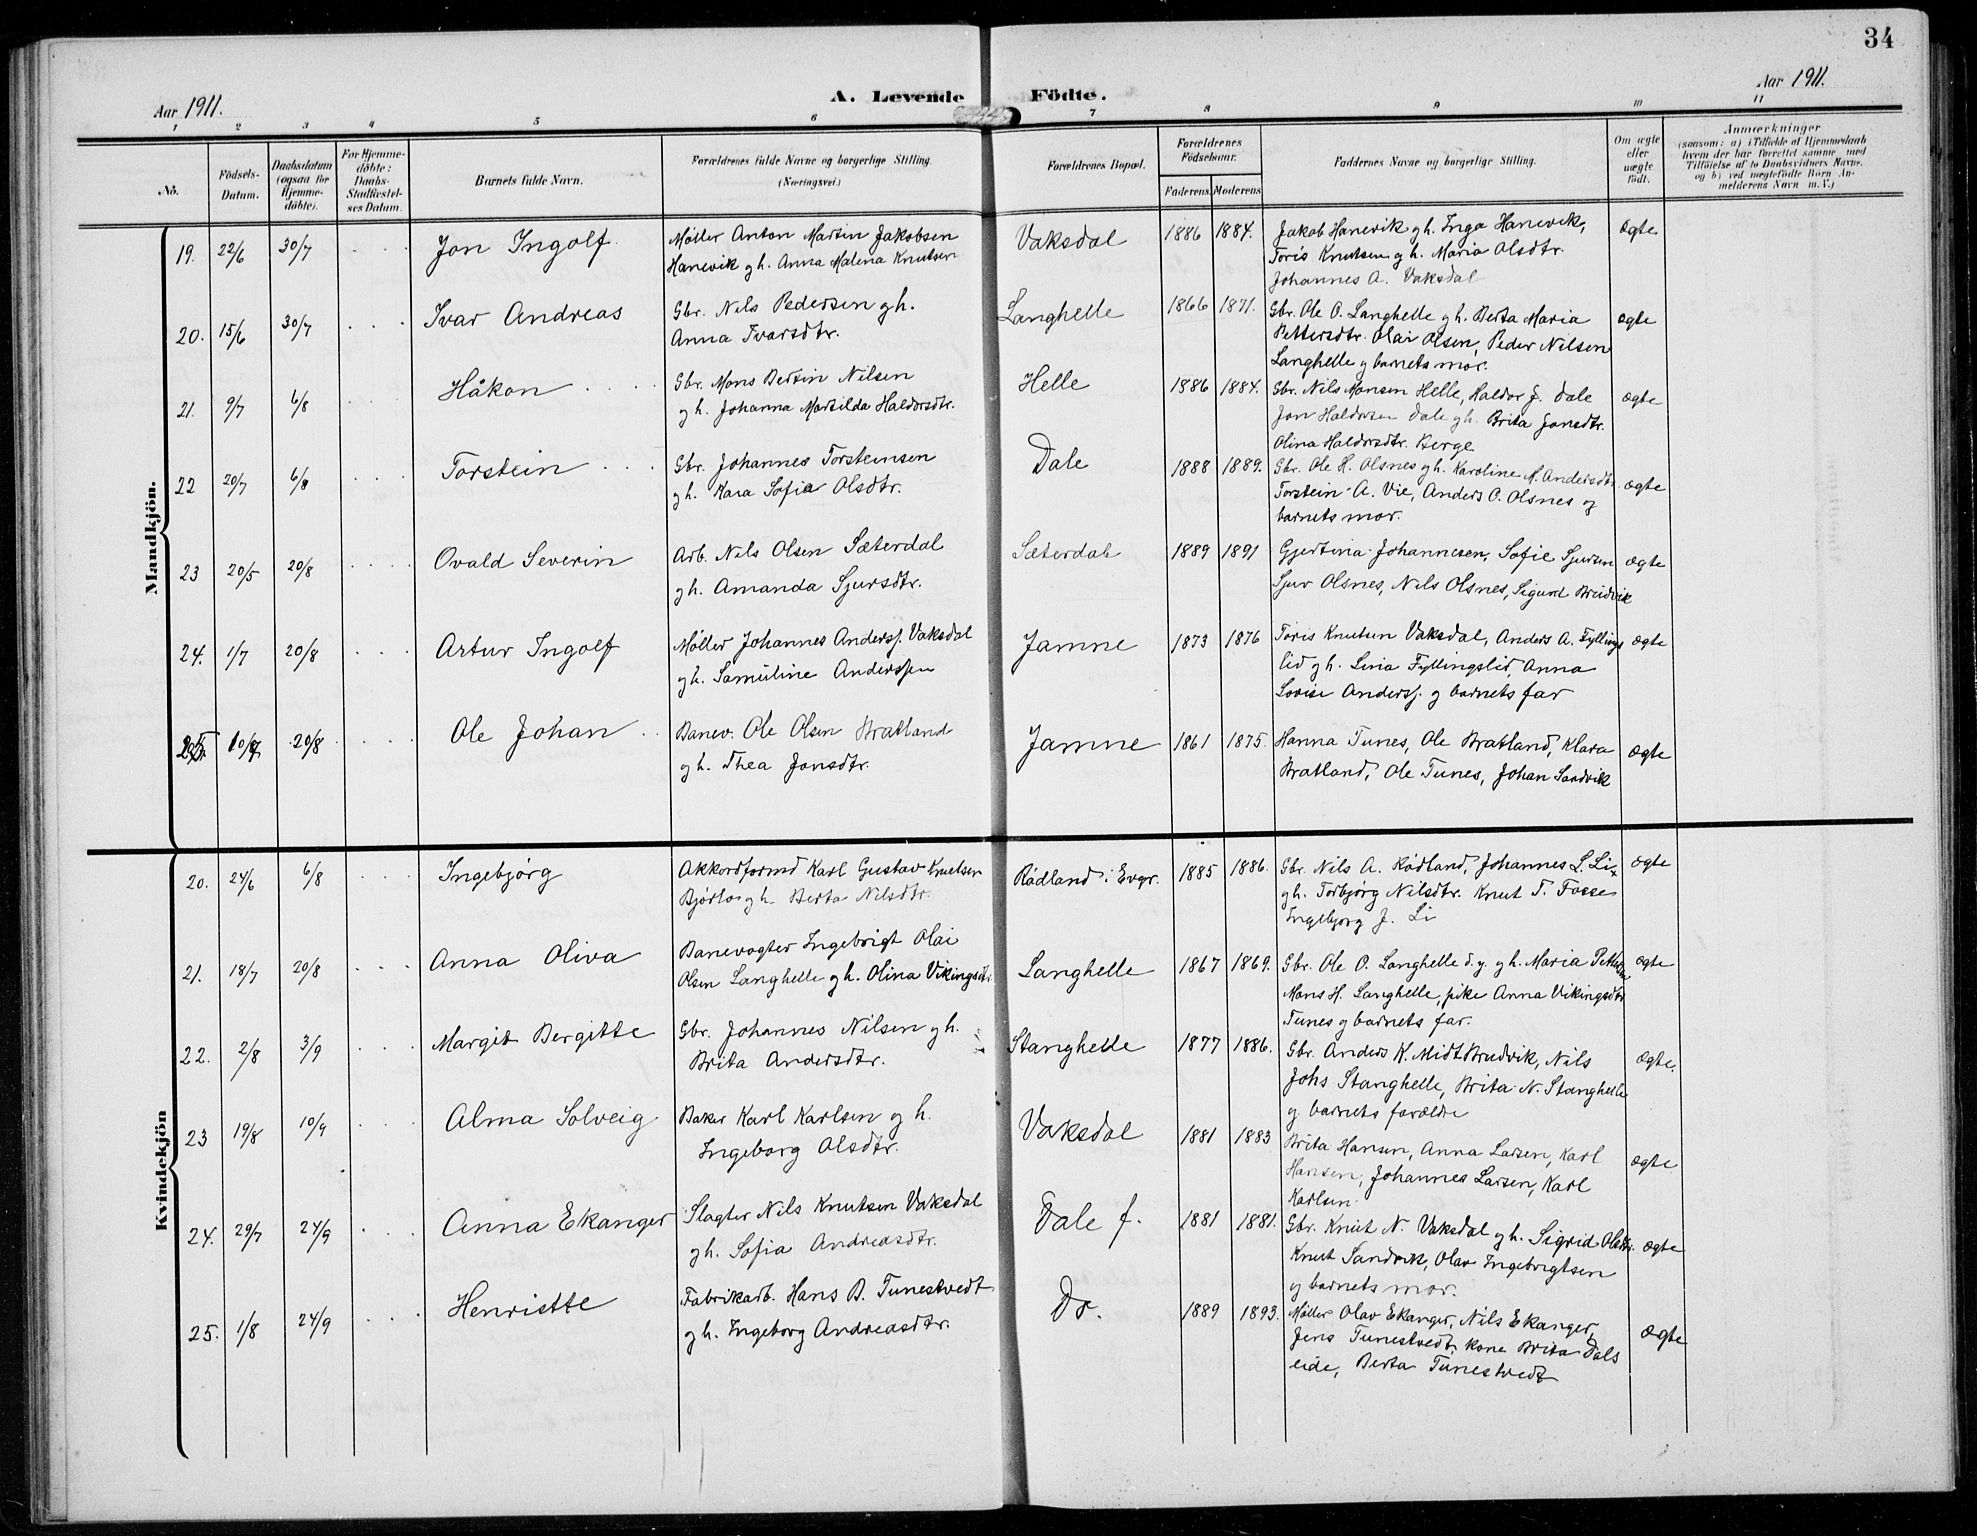 34
Aar 1911.
A. Levende Födte.
Aar 1911.
1 2 3 4 5 6 7 8 9 10 11
No.
Födsels-Datum.
Daabsdatum (ogsaa for Hjemmedöbte).
For Hjemmedöbte: Daabs-Stadfæstelses Datum.
Barnets fulde Navn.
Forældrenes fulde Navne og borgerlige Stilling. (Næringsvei.)
Forældrenes Bopæl.
Forældrenes Födselsaar.
Faderens Moderens
Faddernes Navne og borgerlige Stilling.
Om ægte eller uægte födt.
Anmærkninger
(saasom: a) i Tilfælde af Hjemmedaab hvem der har forrettet samme med Tilföielse af to Daabsvidners Navne. og b) ved uægtefödte Börn Anmelderens Navn m. V.)
Mandkjön.
19. 22/6 30/7 Jon Ingolf Møller Anton Martin Jakobsen Vaksdal 1886 1884. Jakob Hanevik gh. Inga Hanevik, ægte
Hanevik gh. Anna Malena Knutsen Toris Knutsen gh. Maria Olsdtr.
Johannes A. Vaksdal
20. 15/6 30/7 Ivar Andreas Gbr. Nils Pedersen gh. Langhelle 1866 1871. Gbr. Ole O. Langhelle gh. Berta Maria ægte
Anna Ivarsdtr. Pettersdtr. Olai Olsen, Peder Nilsen
Langhelle g barnets mor.
21. 9/7 6/8 Håkon Gbr. Mons Bertin Nilsen Helle 1886 1884. Gbr. Nils Monsen Helle, Haldor J. Dale ægte
gh. Johanna Martilda Haldorsdtr. Jon Haldorsen Dale gh. Brita Jonsdtr.
Olina Haldorsdtr. Berge
22 20/7 6/8 Torstein Gbr. Johannes Torsteinsen Dale 1888 1889. Gbr. Ole H. Olsnes gh. Karoline M. Andersdtr. ægte
gh. Kara Sofia Olsdtr. Torstein A. Vie, Anders O. Olsnes og
barnets mor.
23 20/5 20/8 Ovald Severin Arb. Nils Olsen Sæterdal Sæterdal 1889 1891 Gjertina Johannesen, Sofie Sjursen ægte
gh. Amanda Sjursdtr. Sjur Olsnes, Nils Olsnes, Sigurd Bruvik
24. 1/7 20/8 Artur Ingolf Møller Johannes Anderss. Vaksdal Jamne 1873 1876 Toris Knutsen Vaksdal, Anders A. Fyllings ægte
gh. Samuline Anderssen lid gh. Lina Fyllingslid, Anna
Lovise Anderss. g barnets far
25. 10/7 20/8 Ole Johan Banev. Ole Olsen Bratland Jamne 1861 1875. Hanna Tunes, Ole Bratland, Klara ægte
gh. Thea Jonsdtr. Bratland, Ole Tunes, Johan Sandvik
Kvindekjön
20. 24/6 6/8 Ingebjørg Akkordformd Karl Gustav Knutsen Rødland i Evgr. 1885 1886. Gbr. Nils A. Rødland, Johannes L. Li ægte
Bjørlo gh. Berta Nilsdtr. gh. Torbjørg Nilsdtr. Knut T. Fosse
Ingebjorg J. Li
21. 18/7 20/8 Anna Oliva Banevogter Ingebrigt Olai Langhelle 1867 1869. Gbr. Ole O. Langhelle d. y. gh. Maria ægte
Olsen Langhelle gh. Olina Vikingsdtr. Mons H. Langhelle, pike Anna Vikingsdtr
Tunes g barnets far.
22. 2/8 3/9 Margit Bergitte Gbr. Johannes Nilsen gh. Stanghelle 1877 1886. Gbr. Anders K. Midt Bruvik, Nils ægte.
Brita Andersdtr. Johs Stanghelle, Brita N. Stanghelle
g barnets forældre
23 19/8 10/9 Alma Solveig Baker Karl Karlsen g h. Vaksdal 1881 1883 Brita Hansen, Anna Larsen, Karl ægte
Ingeborg Olsdtr. Hansen, Johannes Larsen, Karl
Karlsen
24. 29/7 24/9 Anna Ekanger Slagter Nils Knutsen Vaksdal Dale f. 1881 1881. Gbr. Knut N. Vaksdal gh. Sigrid Olsdtr. ægte
gh. Sofia Andreasdtr. Knut Sandvik, Olav Ingebrigtsen
g barnets mor.
25. 1/8 24/9 Henriette Fabrikarb. Hans B. Tunestvedt Do. 1889 1893. Møller Olav Ekanger, Nils Ekanger, ægte
gh. Ingeborg Andreasdtr. Jens Tunestvedt, kone Brita Dals
eide, Berta Tunestvedt